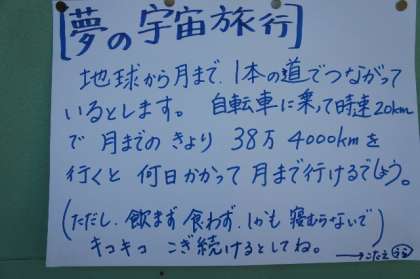 [夢の宇宙旅行]
地球から月まで、1本の道でつながって
いるとします。自転車に乗って時速20km
で 月までの きょり 38万4000kmを
行くと 何日かかって 月まで行けるでしょう。
(ただし、飲まず 食わず、しかも 寝むらないで)
キコキコ こぎ続けるとしてね。
→こたえ